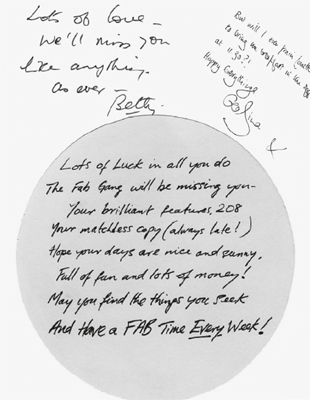 Lots of love –
We'll miss you
like anything.
as ever –
Betty.
But will I ever
to bring me breakfast in
at 11.30?!
Happy Everythings
Lots of Luck in all you do
The Fab Gang will be missing you–
Your brilliant features, 208
Your matchless copy (always late!)
Hope your days are nice and sunny,
Full of fun and lots of money!
May you find the things you seek
And Have a FAB Time Every Week!